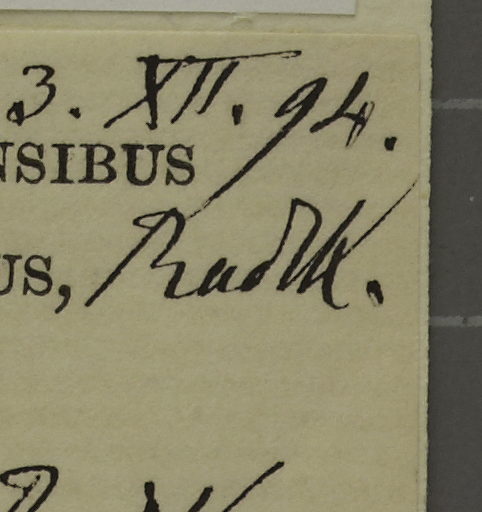 3. XII. 94.
NSIBUS
US, Radlk.